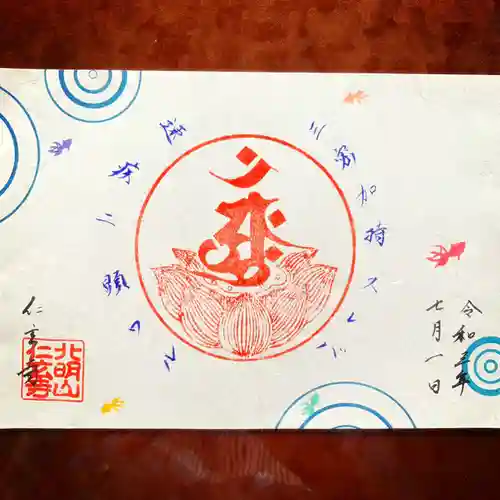 令和三年
七月一日
三密加持スレバ
速疾ニ顕ワル
仁玄寺
北明山
仁玄寺